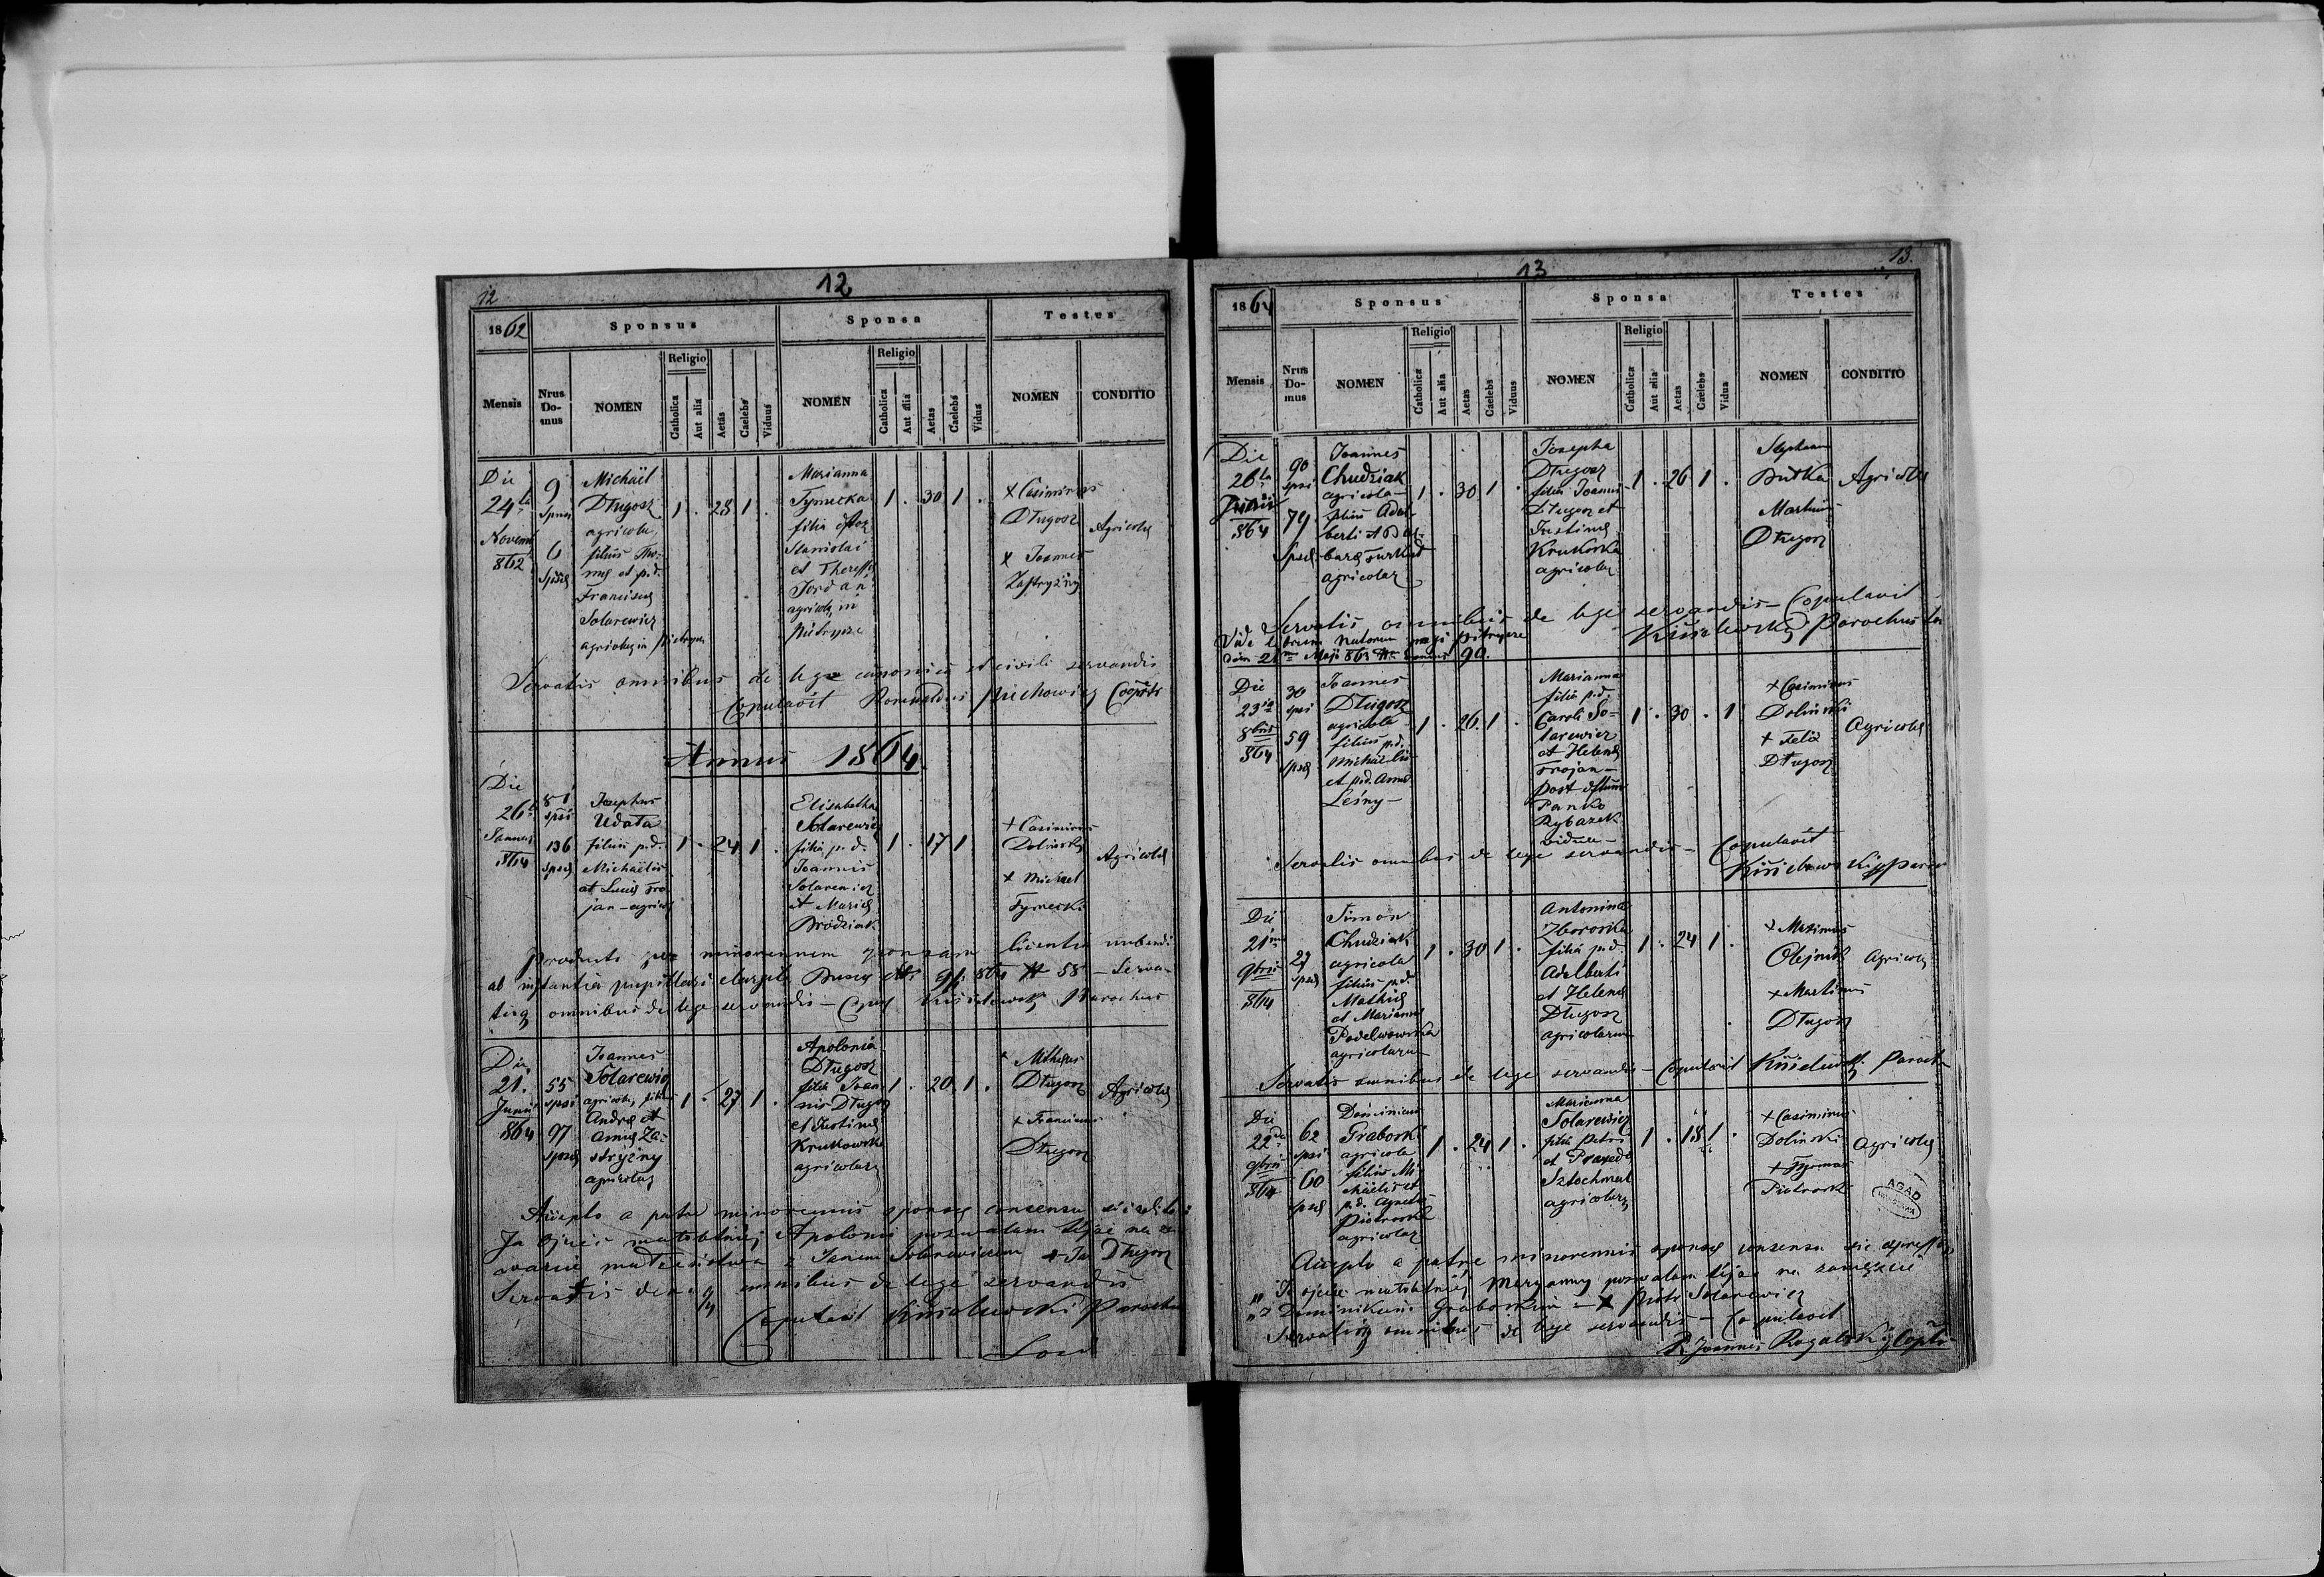 12
12
1862
Sponsus
Sponsa
Testes
Mensis
Nrus Do-mus
NOMEN
Religio
Catholica
Aut alia
Aetas
Caelebs
Viduus
NOMEN
Religio
Catholica
Aut alia
Aetas
Caelebs
Vidua
NOMEN
CONDITIO
Die
24ta
Novem
862
9
Spnsi
6
Spsae
Michäel
Długosz
agricola,
filius Tho-
mae et p.d.
Francisca
Solarewicz
1 . 28 1 .
Marianna
Tymecka
filia
Stanislai
et Theressa
Jordan
agricolar in
Pietrycze
1 . 30 1 .
+ Casimirus
Długosz
+ Joannes
Zastryżny
Agricolae
Servatis omnibus de lege canonica et civili servandis
Copulavit Romualdus
Annus 1864
Die
26ta
864
81
spsi
136
spsae
Josephus
Udata
filius p.d.
Michäelis
et Luciae Tro-
jan - agricol
1 . 24 1 .
Elisabetha
Solarewicz
filia p.d.
Joannis
Solarewicz
et Maria
Brodziak
1 . 17 1
+ Casimirus
Dolinski
+ Michael
Tymecki
Agricolae
Producta per minorennem sponsam licentia nubendi
ab instantia pupillari
omnibus de lege servandis - Parochus
Die
21.
Junii
864
55
spsi
97
spsae
Joannes
Solarewicz
agricola, filius
Andreae et
Annae Za-
stryżny
agricolar
1 . 27 1 .
Apolonia
Długosz
filia Joan
nis Długosz
et Justina
Krukowska
agricolar
1 . 20 1 .
Mathaeus
Długosz
+ Franciscus
Długosz
Agricolae
Accepto a patre minorennis sponsae consensu
Ja Ojciec małoletniej Apolonii pozwalam tejże na za-
warcie małżeństwa z Janem Solarewiczem + Jan Długosz
Servatis omnibus de lege servandis
Copulavit Parochus
13
13.
1864
Sponsus
Sponsa
Testes
Mensis
Nrus Do-mus
NOMEN
Religio
Catholica
Aut alia
Aetas
Caelebs
Viduus
NOMEN
Religio
Catholica
Aut alia
Aetas
Caelebs
Vidua
NOMEN
CONDITIO
Die
26ta
Junii
864
90
spsi
79
Spsae
Joannes
Chudziak
agricola
filius Adal-
berti et Bar-
bara
agricolar
1 . 30 1 .
Josepha
Długosz
filia Joannis
Długosz et
Justina
Krukoska
agricolar
1 . 26 1 .
Stephan
Butka
Martinus
Długosz
Agricolae
Servatis omnibus de lege servandis - Copulavit
Vide librum Natorum pagi Pietrycze
Parochus
90.
Die
23tia
8bris
864
30
spsi
59
spsae
Joannes
Długosz
agricola
filius p.d.
Michaelis
et p.d. Anna
Leśny -
1 . 26 1 .
Marianna
filia p.d.
Caroli So-
larewicz
et Helena
Trojan -
post
Panko
Rybaczek
vidua -
1 . 30 . 1
+ Casimirus
Dolinski
+ Felix
Długosz
Agricolae
Servatis omnibus de lege servandis - Copulavit
Die
21ma
9bris
864
27
spsae
Simon
Chudziak
agricola
filius p.d.
Mathias
et Marianna
agricolarum
1 . 30 1 .
Antonina
Zboroska
filia p.d.
Adalberti
et Helena
Długosz
agricolarum
1 . 24 1 .
+ Maximus
Olejnik
+ Martinus
Długosz
Agricolae
Servatis omnibus de lege servandis - Copulavit Paroch
Die
22da
9bris
864
62
spsi
60
spsae
Dominicus
Graborski
agricola
filius Mi-
chäelis et
p.d. Agneta
Piotroska
agricolar
1 . 24 1 .
Marianna
Solarewicz
filia Petri
et Praxeda
Sztochmal
agricolar
1 . 18 1 .
+ Casimirus
Dolinski
+ Thomas
Piotroski
Agricolae
AGAD
Accepto a patre minorennis sponsae consensu sic expresso
„Ja ojciec małoletniej Maryanny pozwalam tejże na zamęście
„z Dominikiem Graborskim - + Piotr Solarewicz
Servatis omnibus de lege servandis - Copulavit
R. Joannes Rogalski